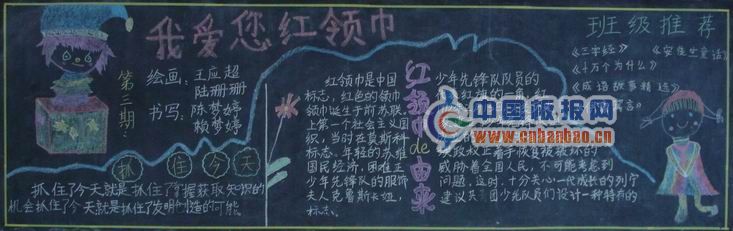 我爱您红领巾
第二期:
绘画:王应超
陆珊珊
书写:陈梦婷
赖梦婷
抓住今天
抓住了今天就是抓住了掌握获取知识的
机会抓住了今天就是抓住了发明创造的可能
红领巾de由来
红领巾是中国
标志,红色的领巾
领巾诞生于前苏联
上第一个社会主义
织,当时在莫斯科
标志。年轻的苏维
国民经济,困难正
少年先锋队的服饰
夫人克鲁斯卡娅,
标志。
少年先锋队队员的
红旗的一角,红
中国板报网
www.cnbanbao.cn
威胁着全国人民,不可能考虑到
问题,这时,十分关心一代成长的列宁
建议共青团少先队员们设计一种特有的
班级推荐
《三字经》《安徒生童话》
《十万个为什么》
《成语故事精选》